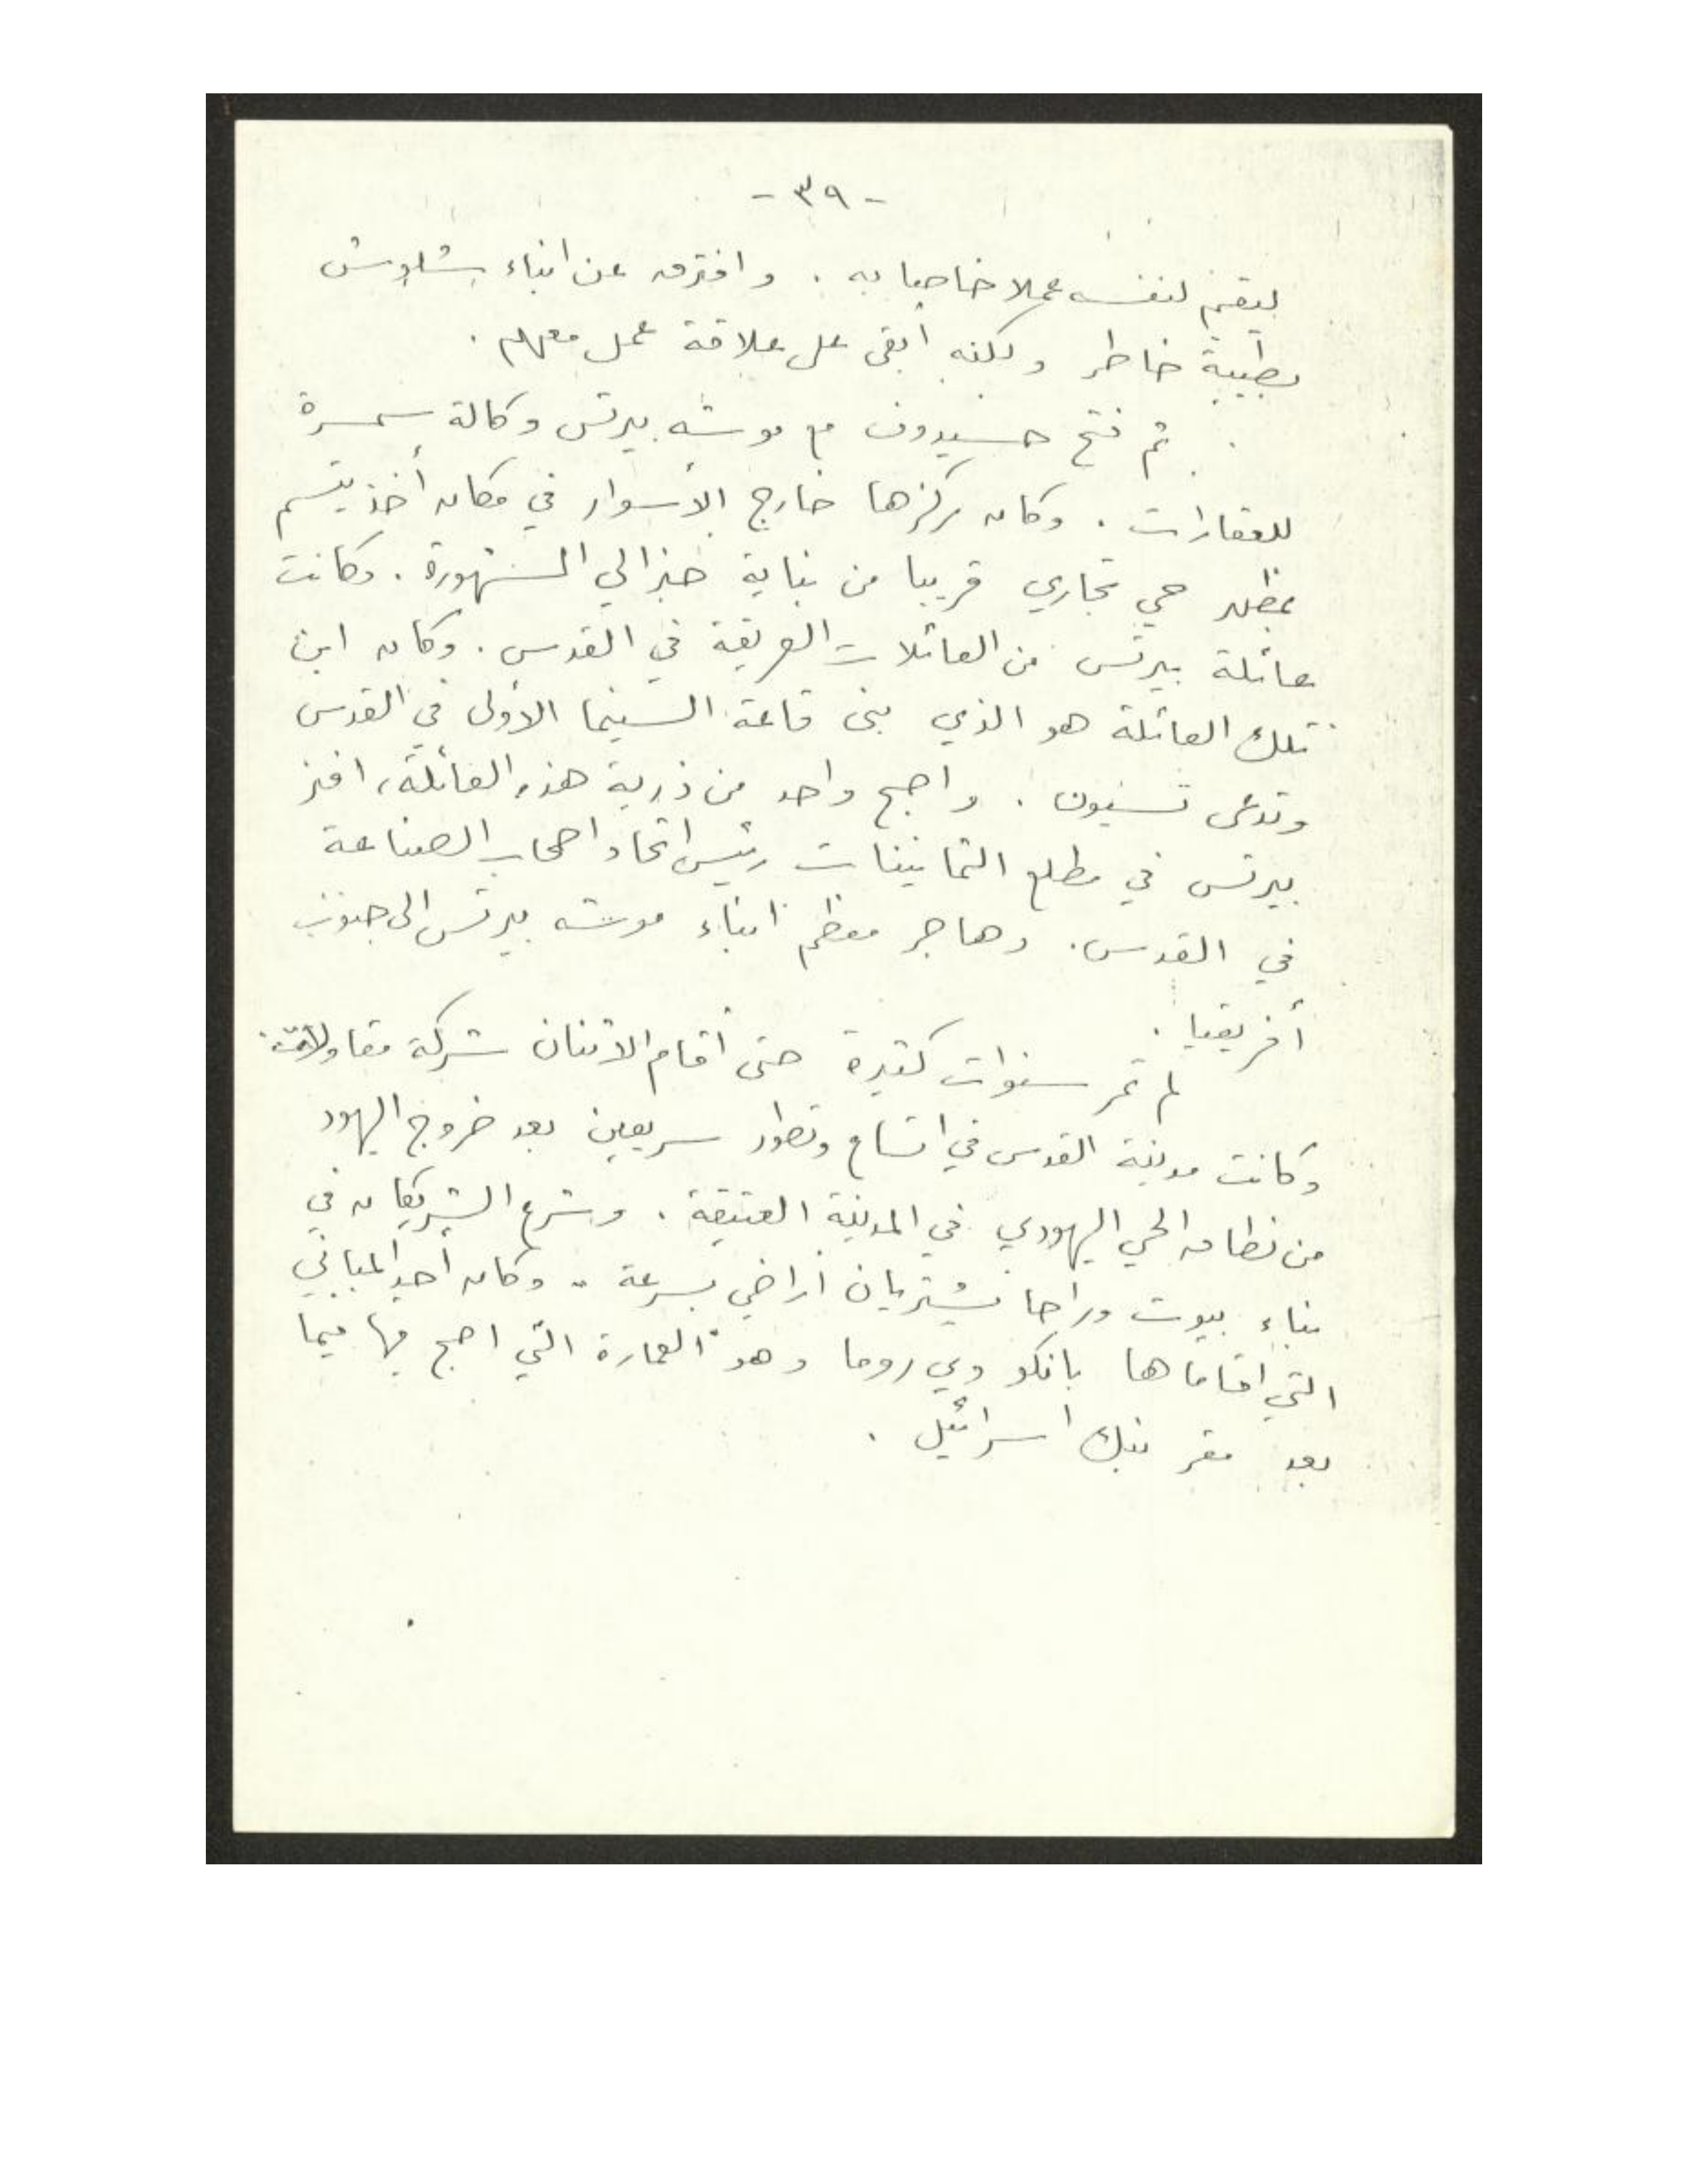 - ٣٩ -
ليقيم لنفسه عملا خاصا به . وافترق عن ابناء شلوش
بطيبة خاطر ولكنه أبقى على علاقة عمل معهم .
ثم فتح حسيدوف مع موشه بيرتس وكالة سمسرة
للعقارات . وكان مركزها خارج الأسوار في مكان أخذ يتسم
بمظهر حي تجاري قريبا من بناية جنرالي المشهورة . وكانت
عائلة بيرتس من العائلات العريقة في القدس . وكان ابن
تلك العائلة هو الذي بنى قاعة السينما الأولى في القدس
وتدعى تسيون . واصبح واحد من ذرية هذه العائلة ، افنر
بيرتس في مطلع الثمانينات رئيس اتحاد اصحاب الصناعة
في القدس . وهاجر معظم أبناء موشه بيرتس الى جنوب
أفريقيا .
لم تمر سنوات كثيرة حتى أقام الاثنان شركة مقاولات
وكانت مدينة القدس في اتساع وتطور سريعين بعد خروج اليهود
من نطاق الحي اليهودي في المدينة العتيقة . وشرع الشريكان في
بناء بيوت وراحا يشتريان أراضي بسرعة . وكان أحد المباني
التي اقاماها بانكو دي روما وهو العمارة التي اصبح فيها فيما
بعد مقر بنك اسرائيل .